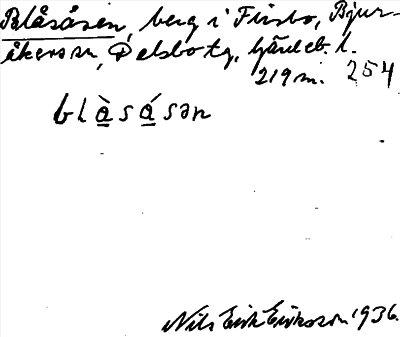 Blåsåsen, berg i Firsbo, Bjur-
åkers sn, Delsbo tg, Gävleb. l.
219 m. 254
blàsásən
Nils Erik Eriksson 1936.